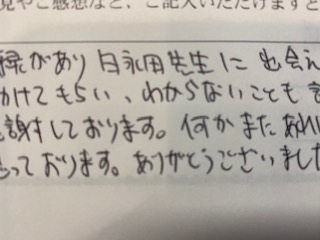 見やご感想など、ご記入いただけますと
縁があり 日永田先生に 出会え
かけてもらい、わからないことも
謝しております。何かまたあれ
っております。ありがとうございました